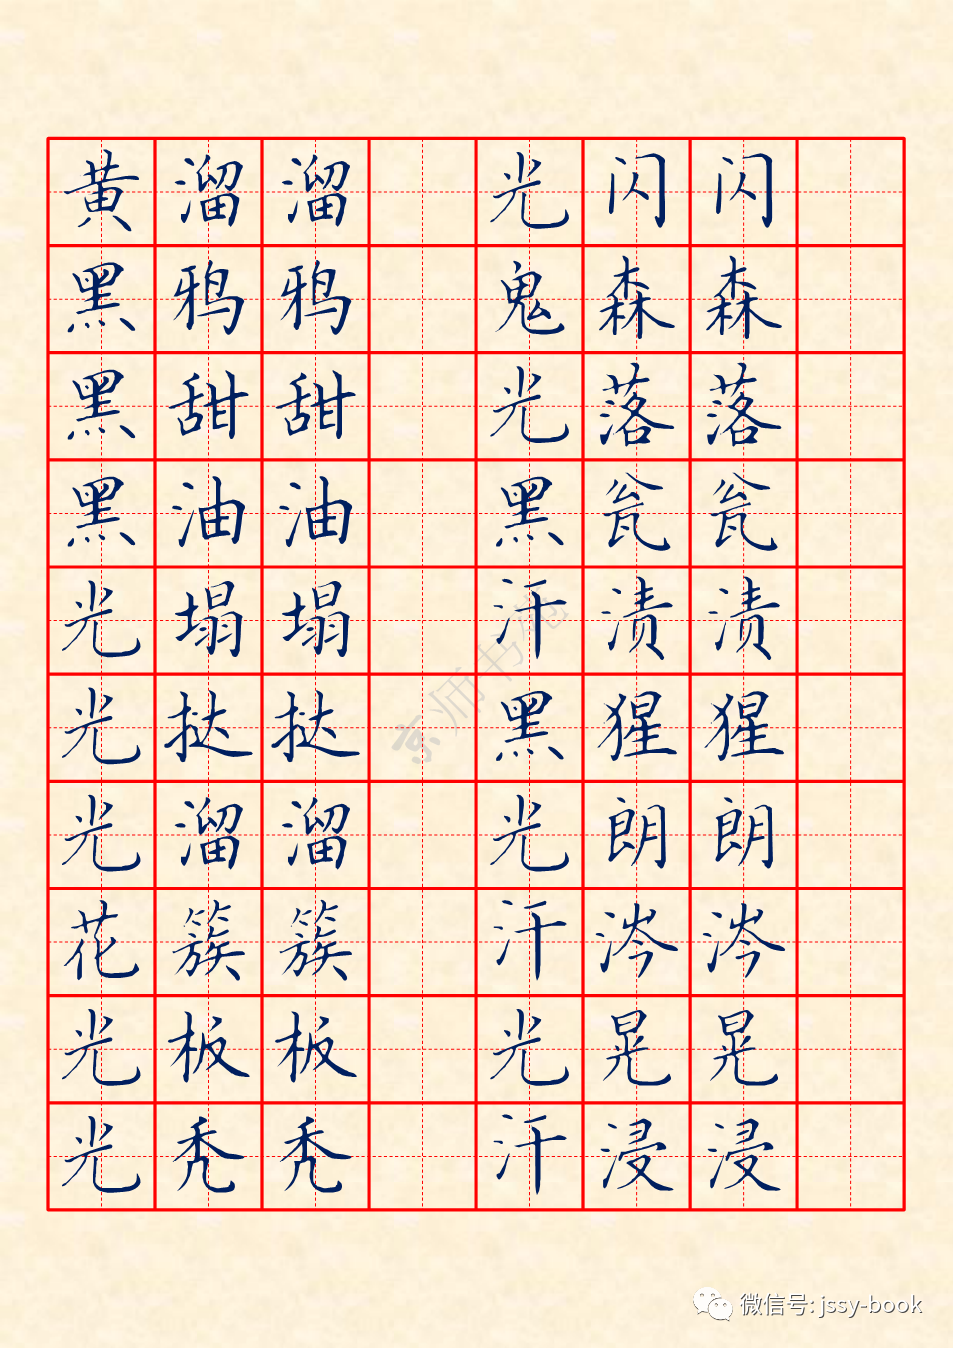 黄溜溜 光闪闪
黑鸦鸦 鬼森森
黑甜甜 光落落
黑油油 黑瓮瓮
光塌塌 汗渍渍
光挞挞 黑猩猩
光溜溜 光朗朗
花簇簇 汗涔涔
光板板 光晃晃
光秃秃 汗浸浸
京师书苑
微信号: jssy-book